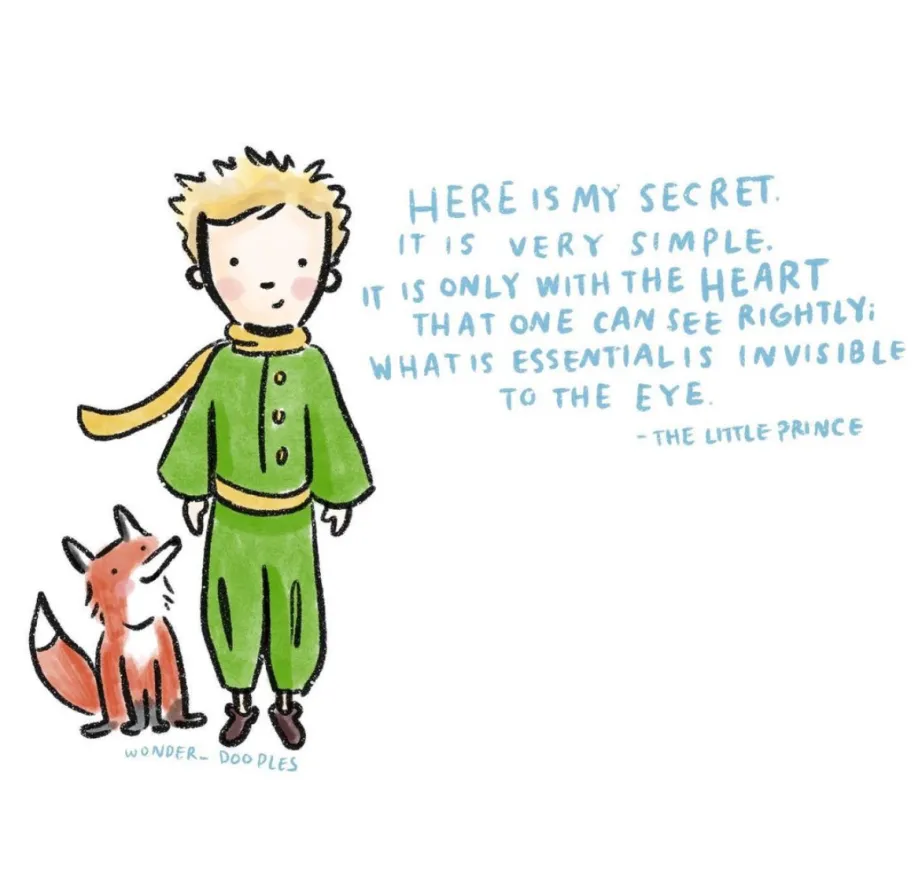 HERE IS MY SECRET.
IT IS VERY SIMPLE.
IT IS ONLY WITH THE HEART
THAT ONE CAN SEE RIGHTLY;
WHAT IS ESSENTIAL IS INVISIBLE
TO THE EYE.
- THE LITTLE PRINCE
WONDER_ DOODLES